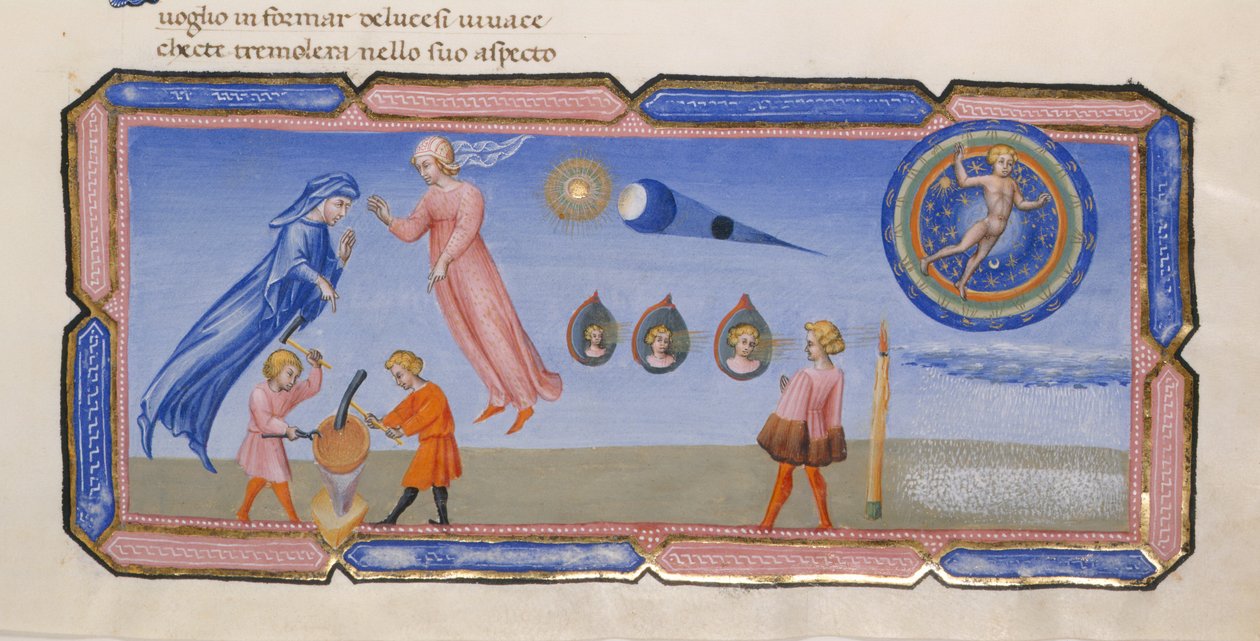 uoglio in formar deluce si uiuace
chette tremolera nello suo aspecto